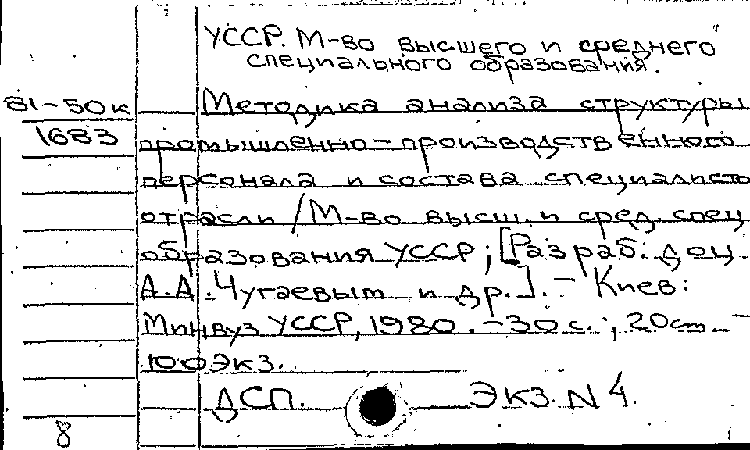 УССР. М-во высшего и среднего
специального образования.
81-50к
Методика анализа структуры
1683
промышленно-производственного
персонала и состава специалисто
отрасли /М-во высш. и сред. спец.
образования УССР; [Разраб. доц.
А.А. Чугаевым и др.]. - Киев:
Минвуз УССР, 1980. - 30 с.; 20см. -
100экз.
ДСП. Экз. N 4.
8